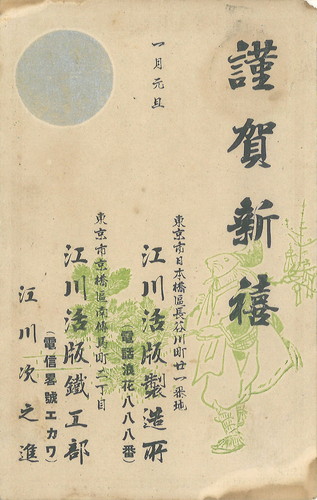 謹賀新禧
一月元旦
東京市日本橋區長谷川町廿一番地
江川活版製造所
(電話浪花八八八番)
東京市京橋區南傳馬町二丁目
江川活版鐵工部
(電信畧號エカワ)
江川次之進